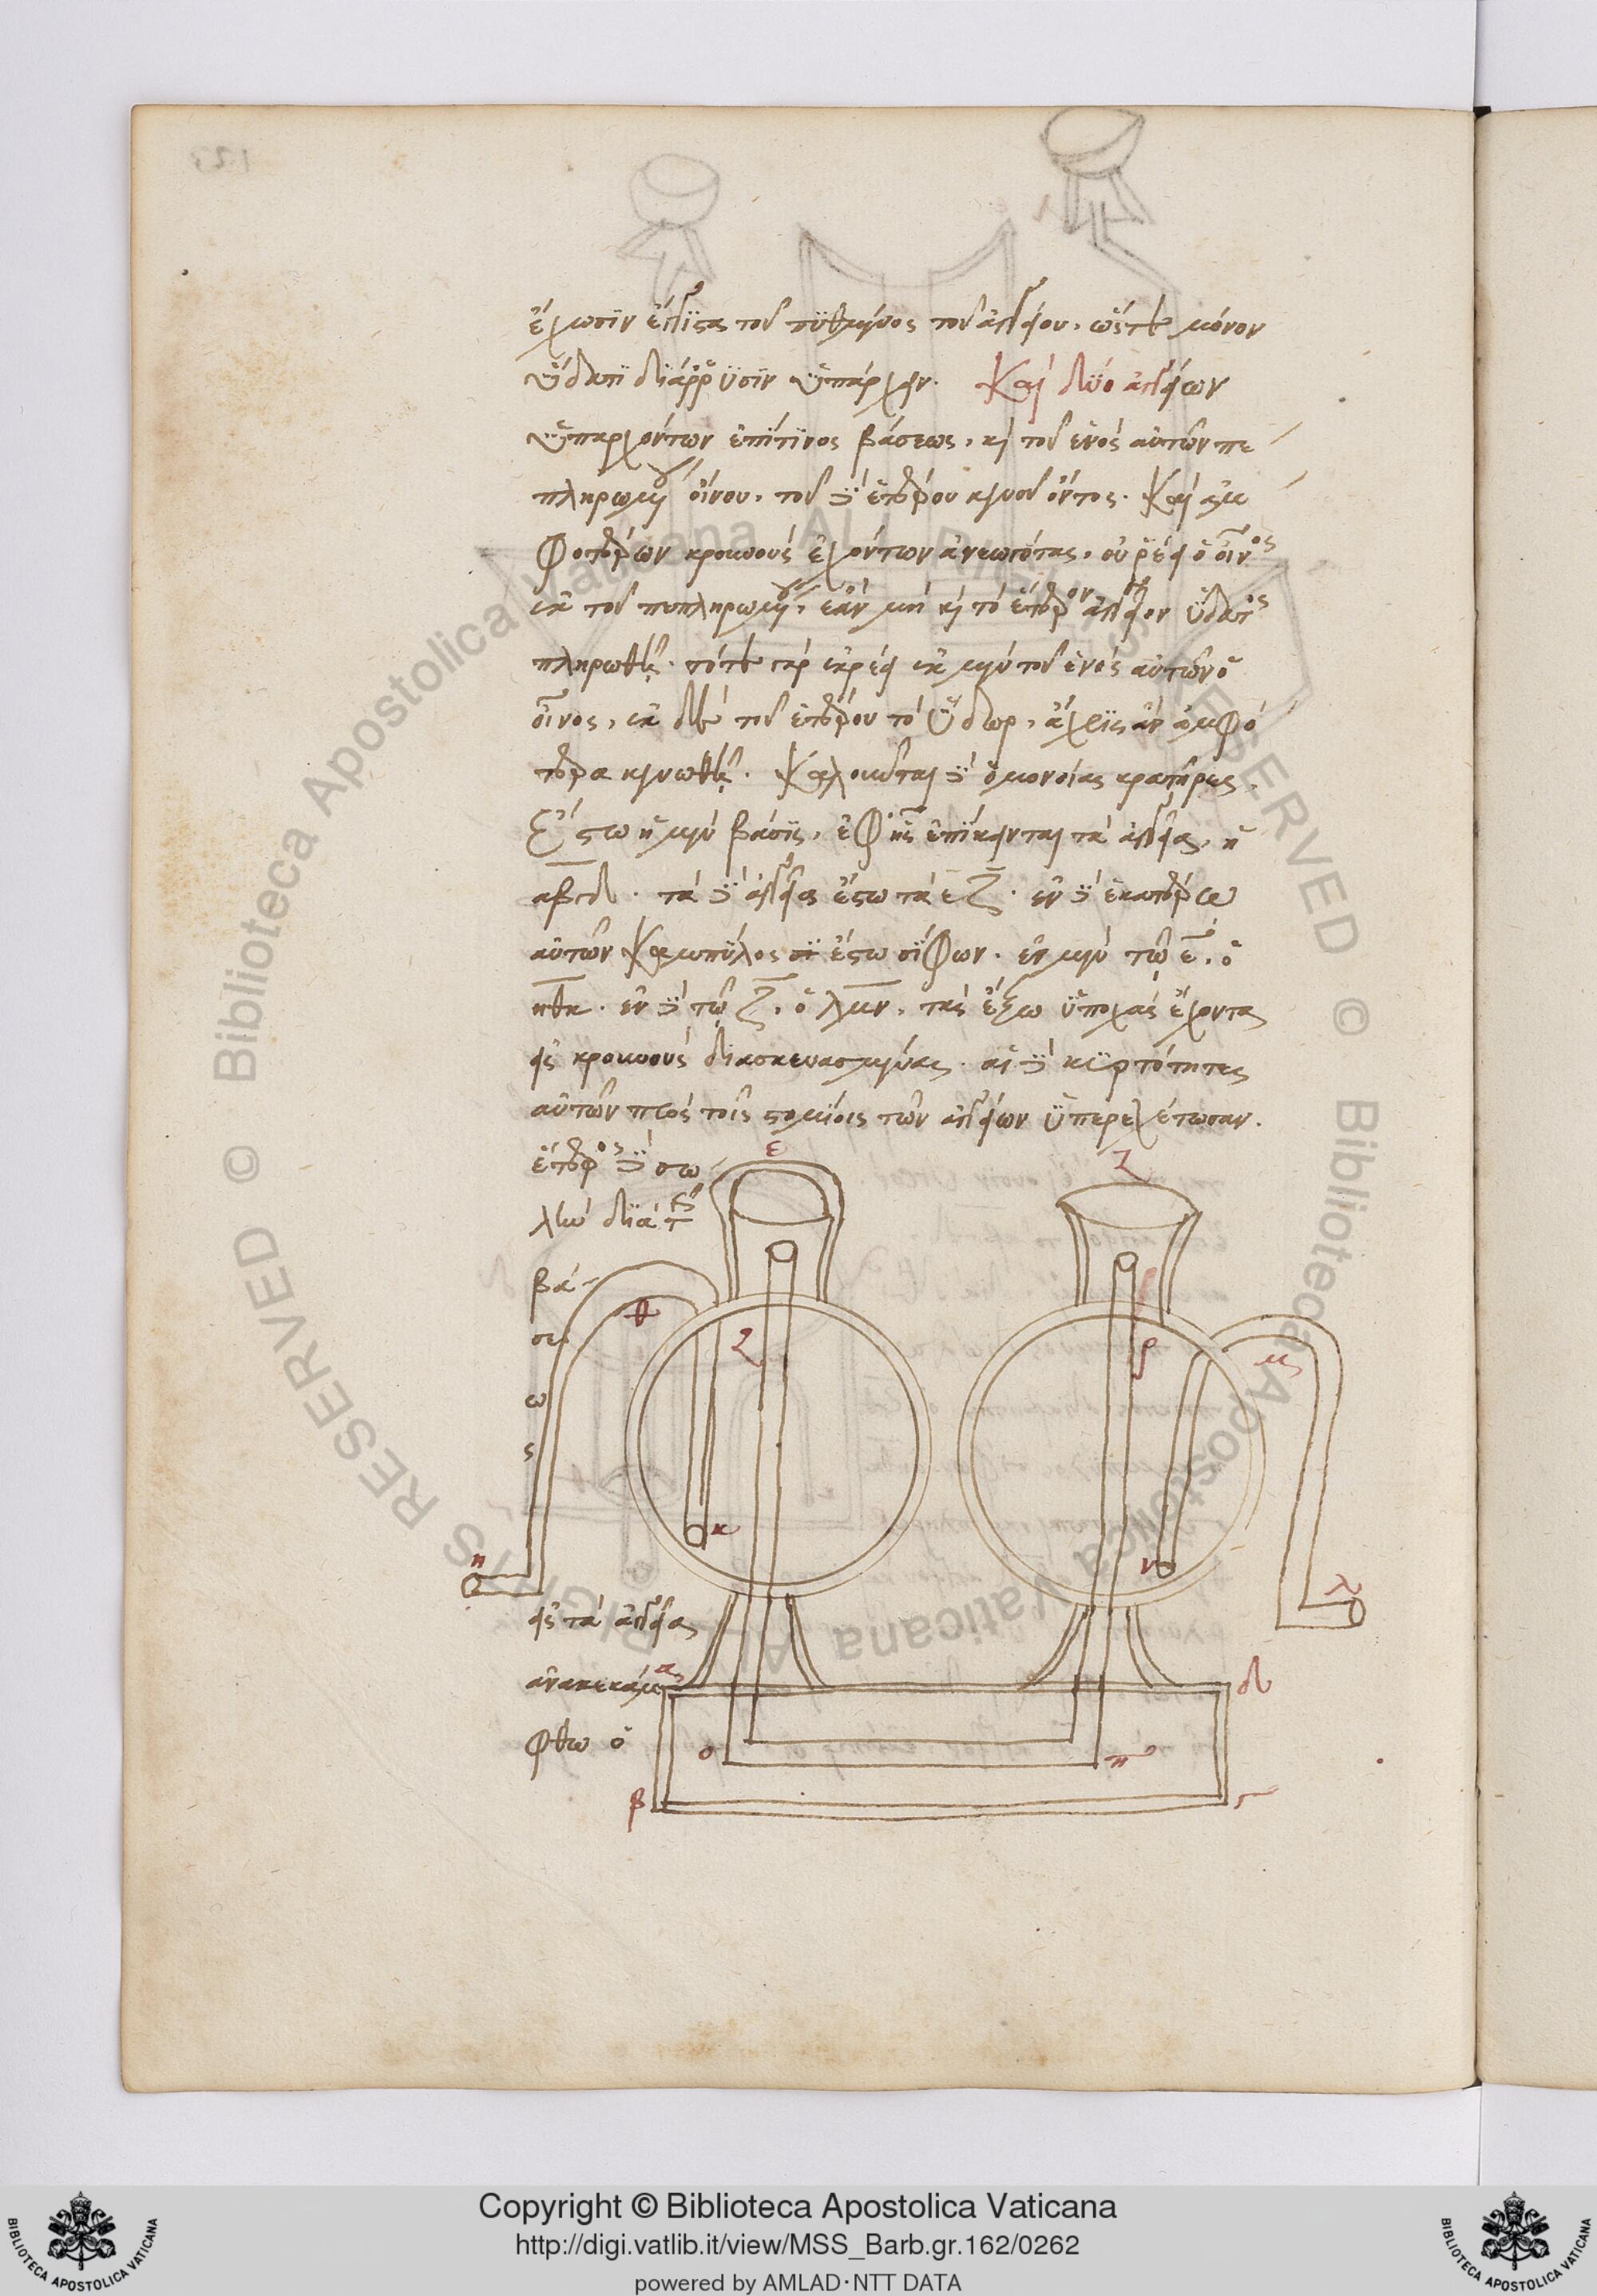 ἔχωσιν ἔγγιστα τοῦ πυθμένος τοῦ ἀγγείου, ὥστε μόνον
ὕδατι διάρρυσιν ὑπάρχειν. Καὶ δύο ἀγγείων
ὑπαρχόντων ἐπί τινος βάσεως, καὶ τοῦ ἑνὸς αὐτῶν πε
πληρωμένου οἴνου, τοῦ δὲ ἑτέρου κενοῦ ὄντος. Καὶ ἀμ
φοτέρων κρουνοὺς ἐχόντων ἀνεωγότας, οὐ ῥέει ὁ οἶνος
ἐκ τοῦ πεπληρωμένου, ἐὰν μὴ καὶ τὸ ἕτερον ἀγγεῖον ὕδατος
πληρωθῇ. τότε γὰρ ἐκρεῖ ἐκ μὲν τοῦ ἑνὸς αὐτῶν ὁ
οἶνος, ἐκ δὲ τοῦ ἑτέρου τὸ ὕδωρ, ἄχρις ἂν ἀμφό
τερα κενωθῇ. Καλοῦνται δὲ ὁμονοίας κρατῆρες.
Ἔστω ἡ μὲν βάσις, ἐφ' ἧς ἐπίκεινται τὰ ἀγγεῖα, ἡ
αβγδ. τὰ δὲ ἀγγεῖα ἔστω τὰ ε ζ. ἐν δὲ ἑκατέρῳ
αὐτῶν καμπύλος ἔστω σίφων. ἐν μὲν τῷ ε, ὁ
ηθκ. ἐν δὲ τῷ ζ, ὁ λμν, τὰς ἔξω ὑπο χὰς ἔχοντας
εἰς κρουνοὺς διεσκευασμένας. αἱ δὲ κυρτότητες
αὐτῶν πρὸς τοῖς στομίοις τῶν ἀγγείων ὑπερεχέτωσαν.
ἕτερος δὲ σω
λὴν διὰ τῆς
βά
σε
ω
ς
εἰς τὰ ἀγγεῖα
ἀνακεκάμ
φθω ὁ
ε
ζ
θ
ξ
ρ
μ
κ
η
ν
λ
α
δ
ο
π
β
γ
© Biblioteca Apostolica Vaticana ALL RIGHTS RESERVED © Biblioteca Apostolica Vaticana ALL RIGHTS RESERVED
Copyright © Biblioteca Apostolica Vaticana
http://digi.vatlib.it/view/MSS_Barb.gr.162/0262
powered by AMLAD·NTT DATA
BIBLIOTECA APOSTOLICA VATICANA
BIBLIOTECA APOSTOLICA VATICANA